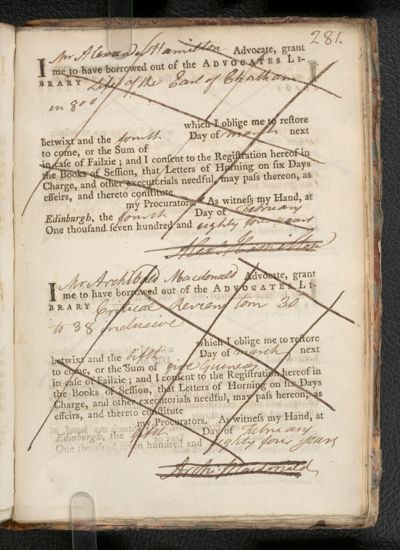 281.
I Mr Alexander Hamilton Advocate, grant
me to have borrowed out of the ADVOCATES LI-
BRARY Life of the Earl of Chatham
in 800
which I oblige me to restore
betwixt and the fourth Day of March next
to come, or the Sum of
in case of Failzie; and I consent to the Registration hereof in
the Books of Session, that Letters of Horning on six Days
Charge, and other executorials needful, may pass thereon, as
effeirs, and thereto constitute
my Procurators. As witness my Hand, at
Edinburgh, the fourth Day of February
One thousand seven hundred and eighty four years
Alexr Hamilton
I Mr Archibald Macdonald Advocate, grant
me to have borrowed out of the ADVOCATES LI-
BRARY Critical Review tom 30
to 38 inclusive
which I oblige me to restore
betwixt and the fifth Day of March next
to come, or the Sum of five Guineas
in case of Failzie; and I consent to the Registration hereof in
the Books of Session, that Letters of Horning on six Days
Charge, and other executorials needful, may pass hereon, as
effeirs, and thereto constitute
my Procurators. As witness my Hand, at
Edinburgh, the fifth Day of February
One thousand seven hundred and eighty four years
Macdonald